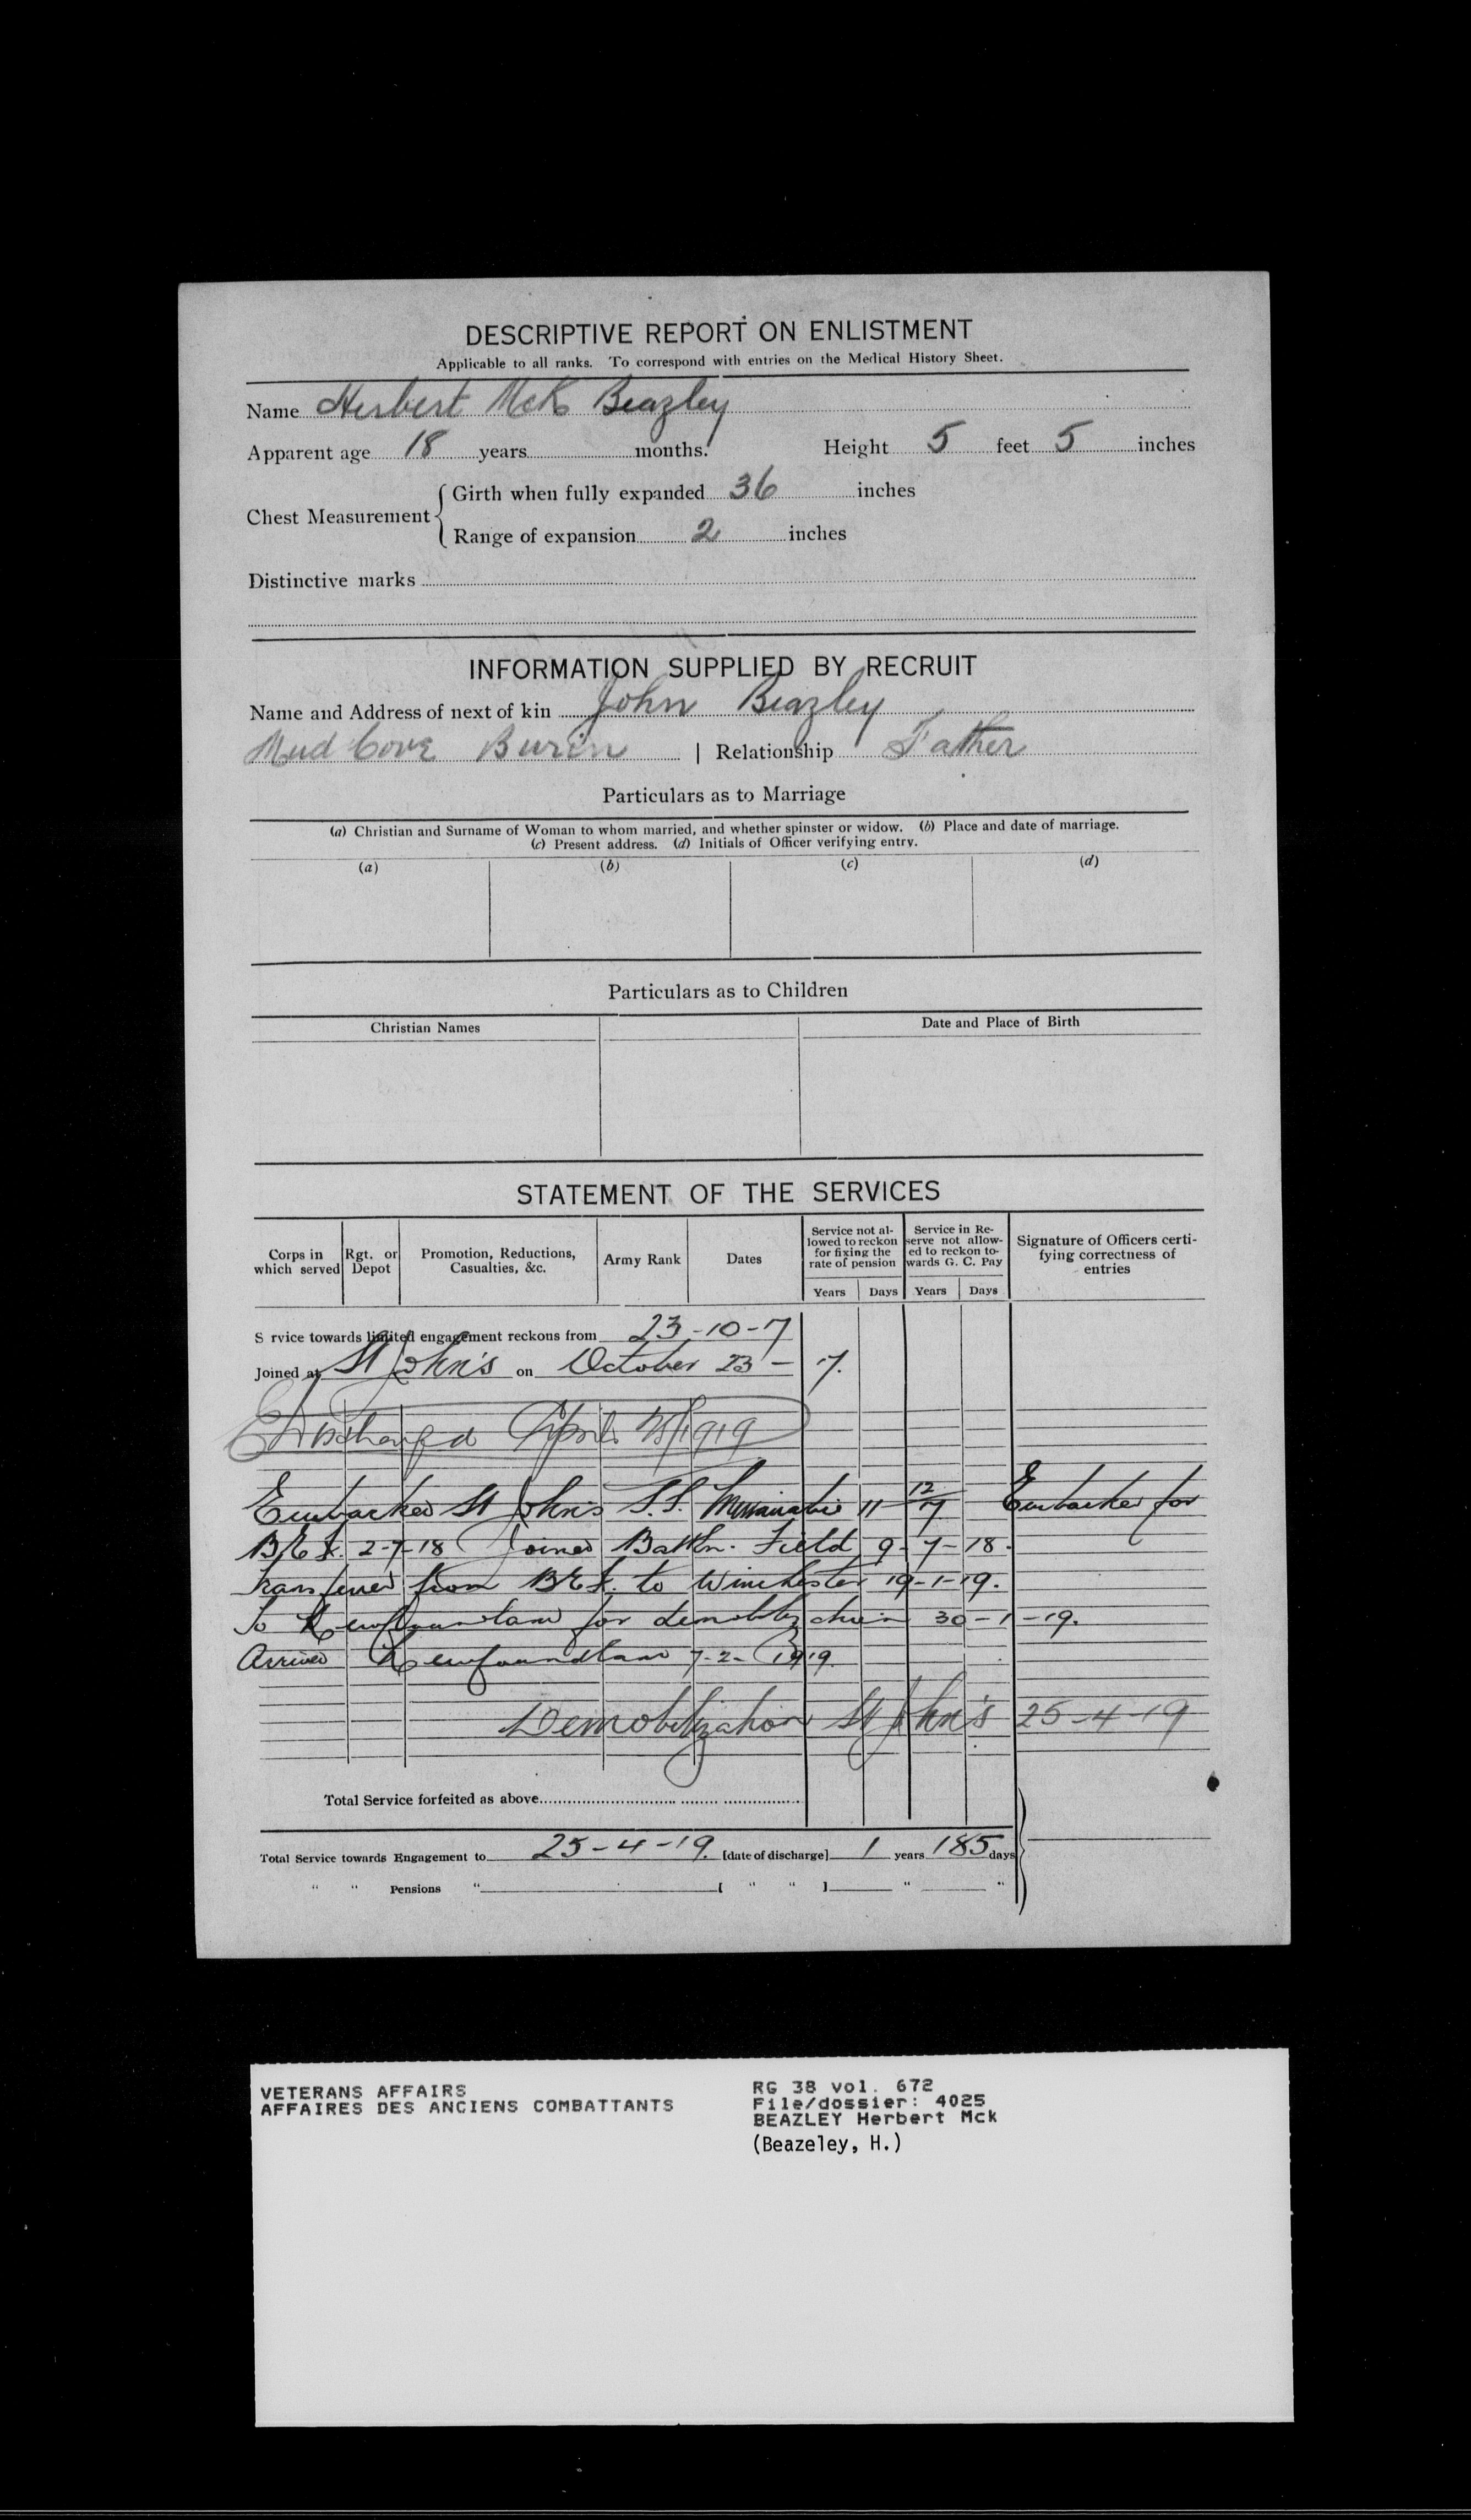 DESCRIPTIVE REPORT ON ENLISTMENT
Applicable to all ranks. To correspond with entries on the Medical History Sheet.
Name Herbert McK Beazley
Apparent age 18 years months. Height 5 feet 5 inches
Chest Measurement { Girth when fully expanded 36 inches
Range of expansion 2 inches
Distinctive marks
INFORMATION SUPPLIED BY RECRUIT
Name and Address of next of kin John Beazley
Mud Cove Burin | Relationship Father
Particulars as to Marriage
(a) Christian and Surname of Woman to whom married, and whether spinster or widow. (b) Place and date of marriage.
(c) Present address. (d) Initials of Officer verifying entry.
(a) (b) (c) (d)
Particulars as to Children
Christian Names Date and Place of Birth
STATEMENT OF THE SERVICES
Corps in which served Rgt. or Depot Promotion, Reductions, Casualties, &c. Army Rank Dates Service not allowed to reckon for fixing the rate of pension Service in Reserve not allowed to reckon towards G. C. Pay Signature of Officers certifying correctness of entries
Years Days Years Days
S rvice towards limited engagement reckons from 23-10-17
Joined at St John's on October 23 - 17.
Discharged April 25/1919
Embarked St John's S.S. 11-12/17 Embarked for
B.E.F. 2-7-18 Joined Battn. Field 9-7-18.
Transferred from B.E.F. to Winchester 19-1-19.
To Newfoundland for demobilization 30-1-19.
Arrived Newfoundland 7-2-1919.
Demobilization St John's 25-4-19
Total Service forfeited as above
Total Service towards Engagement to 25-4-19. [date of discharge] 1 years 185 days
" " Pensions " [ " " ] " "
VETERANS AFFAIRS
AFFAIRES DES ANCIENS COMBATTANTS
RG 38 vol. 672
File/dossier: 4025
BEAZLEY Herbert Mck
(Beazeley, H.)